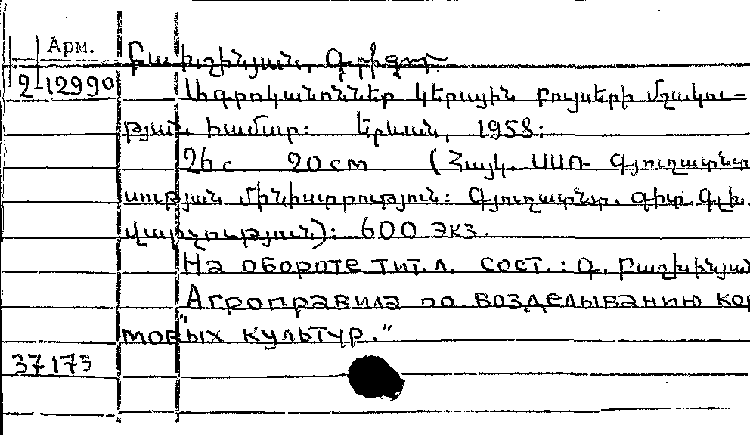 Арм.
2-12990
Բաղխչինյան, Գրիգոր
Ագրոկանոններ կերային բույսերի մշակու-
թյան համար: Երևան, 1958:
26 с 20 см (Հայկ. ՍՍՌ Գյուղատնտե
սության մինիստրություն: Գյուղատնտ. գիտ. գլխ.
վարչություն): 600 экз.
На обороте тит. л. сост.: Գ. Բաղխինյան
Агроправила по возделыванию кор
мовых культур."
37173